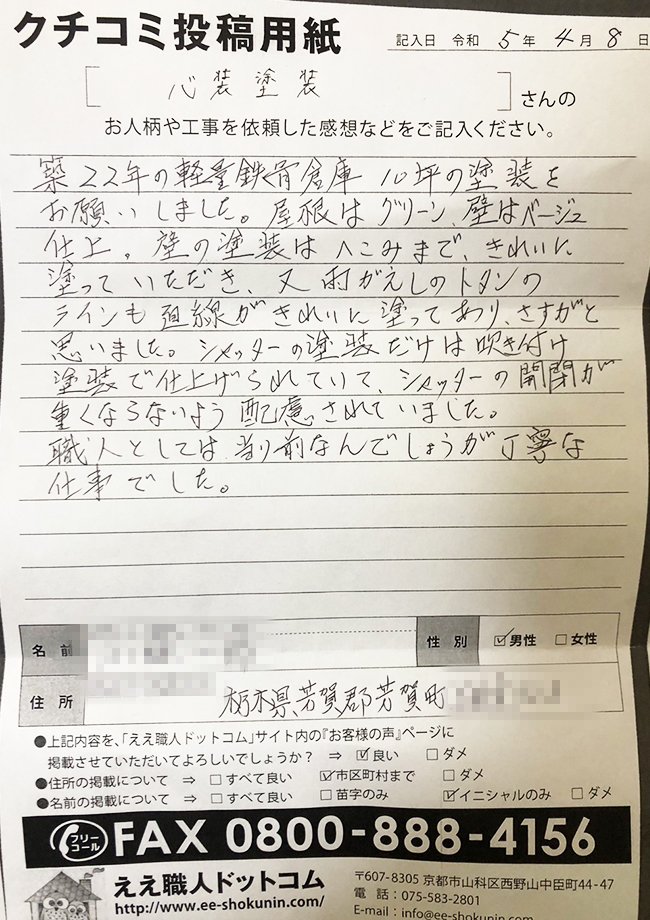 クチコミ投稿用紙
記入日 令和 5年 4月 8日
[心装塗装]さんの
お人柄や工事を依頼した感想などをご記入ください。
築22年の軽量鉄骨倉庫 10坪の塗装を
お願いしました。屋根はグリーン、壁はベージュ
仕上。壁の塗装はへこみまで、きれいに
塗っていただき、又雨がえしのトタンの
ラインも直線がきれいに塗ってあり、さすがと
思いました。シャッターの塗装だけは吹き付け
塗装で仕上げられていて、シャッターの開閉が
重くならないよう配慮されていました。
職人としては当り前なんでしょうが丁寧な
仕事でした。
名前
性別 ☑男性 □女性
住所 栃木県芳賀郡芳賀町
●上記内容を、「ええ職人ドットコム」サイト内の『お客様の声』ページに
掲載させていただいてよろしいでしょうか? ⇒ ☑良い □ダメ
●住所の掲載について ⇒ □すべて良い ☑市区町村まで □ダメ
●名前の掲載について ⇒ □すべて良い □苗字のみ ☑イニシャルのみ □ダメ
フリーコール FAX 0800-888-4156
ええ職人ドットコム
http://www.ee-shokunin.com/
〒607-8305 京都市山科区西野山中臣町44-47
電話：075-583-2801
E-mail：info@ee-shokunin.com